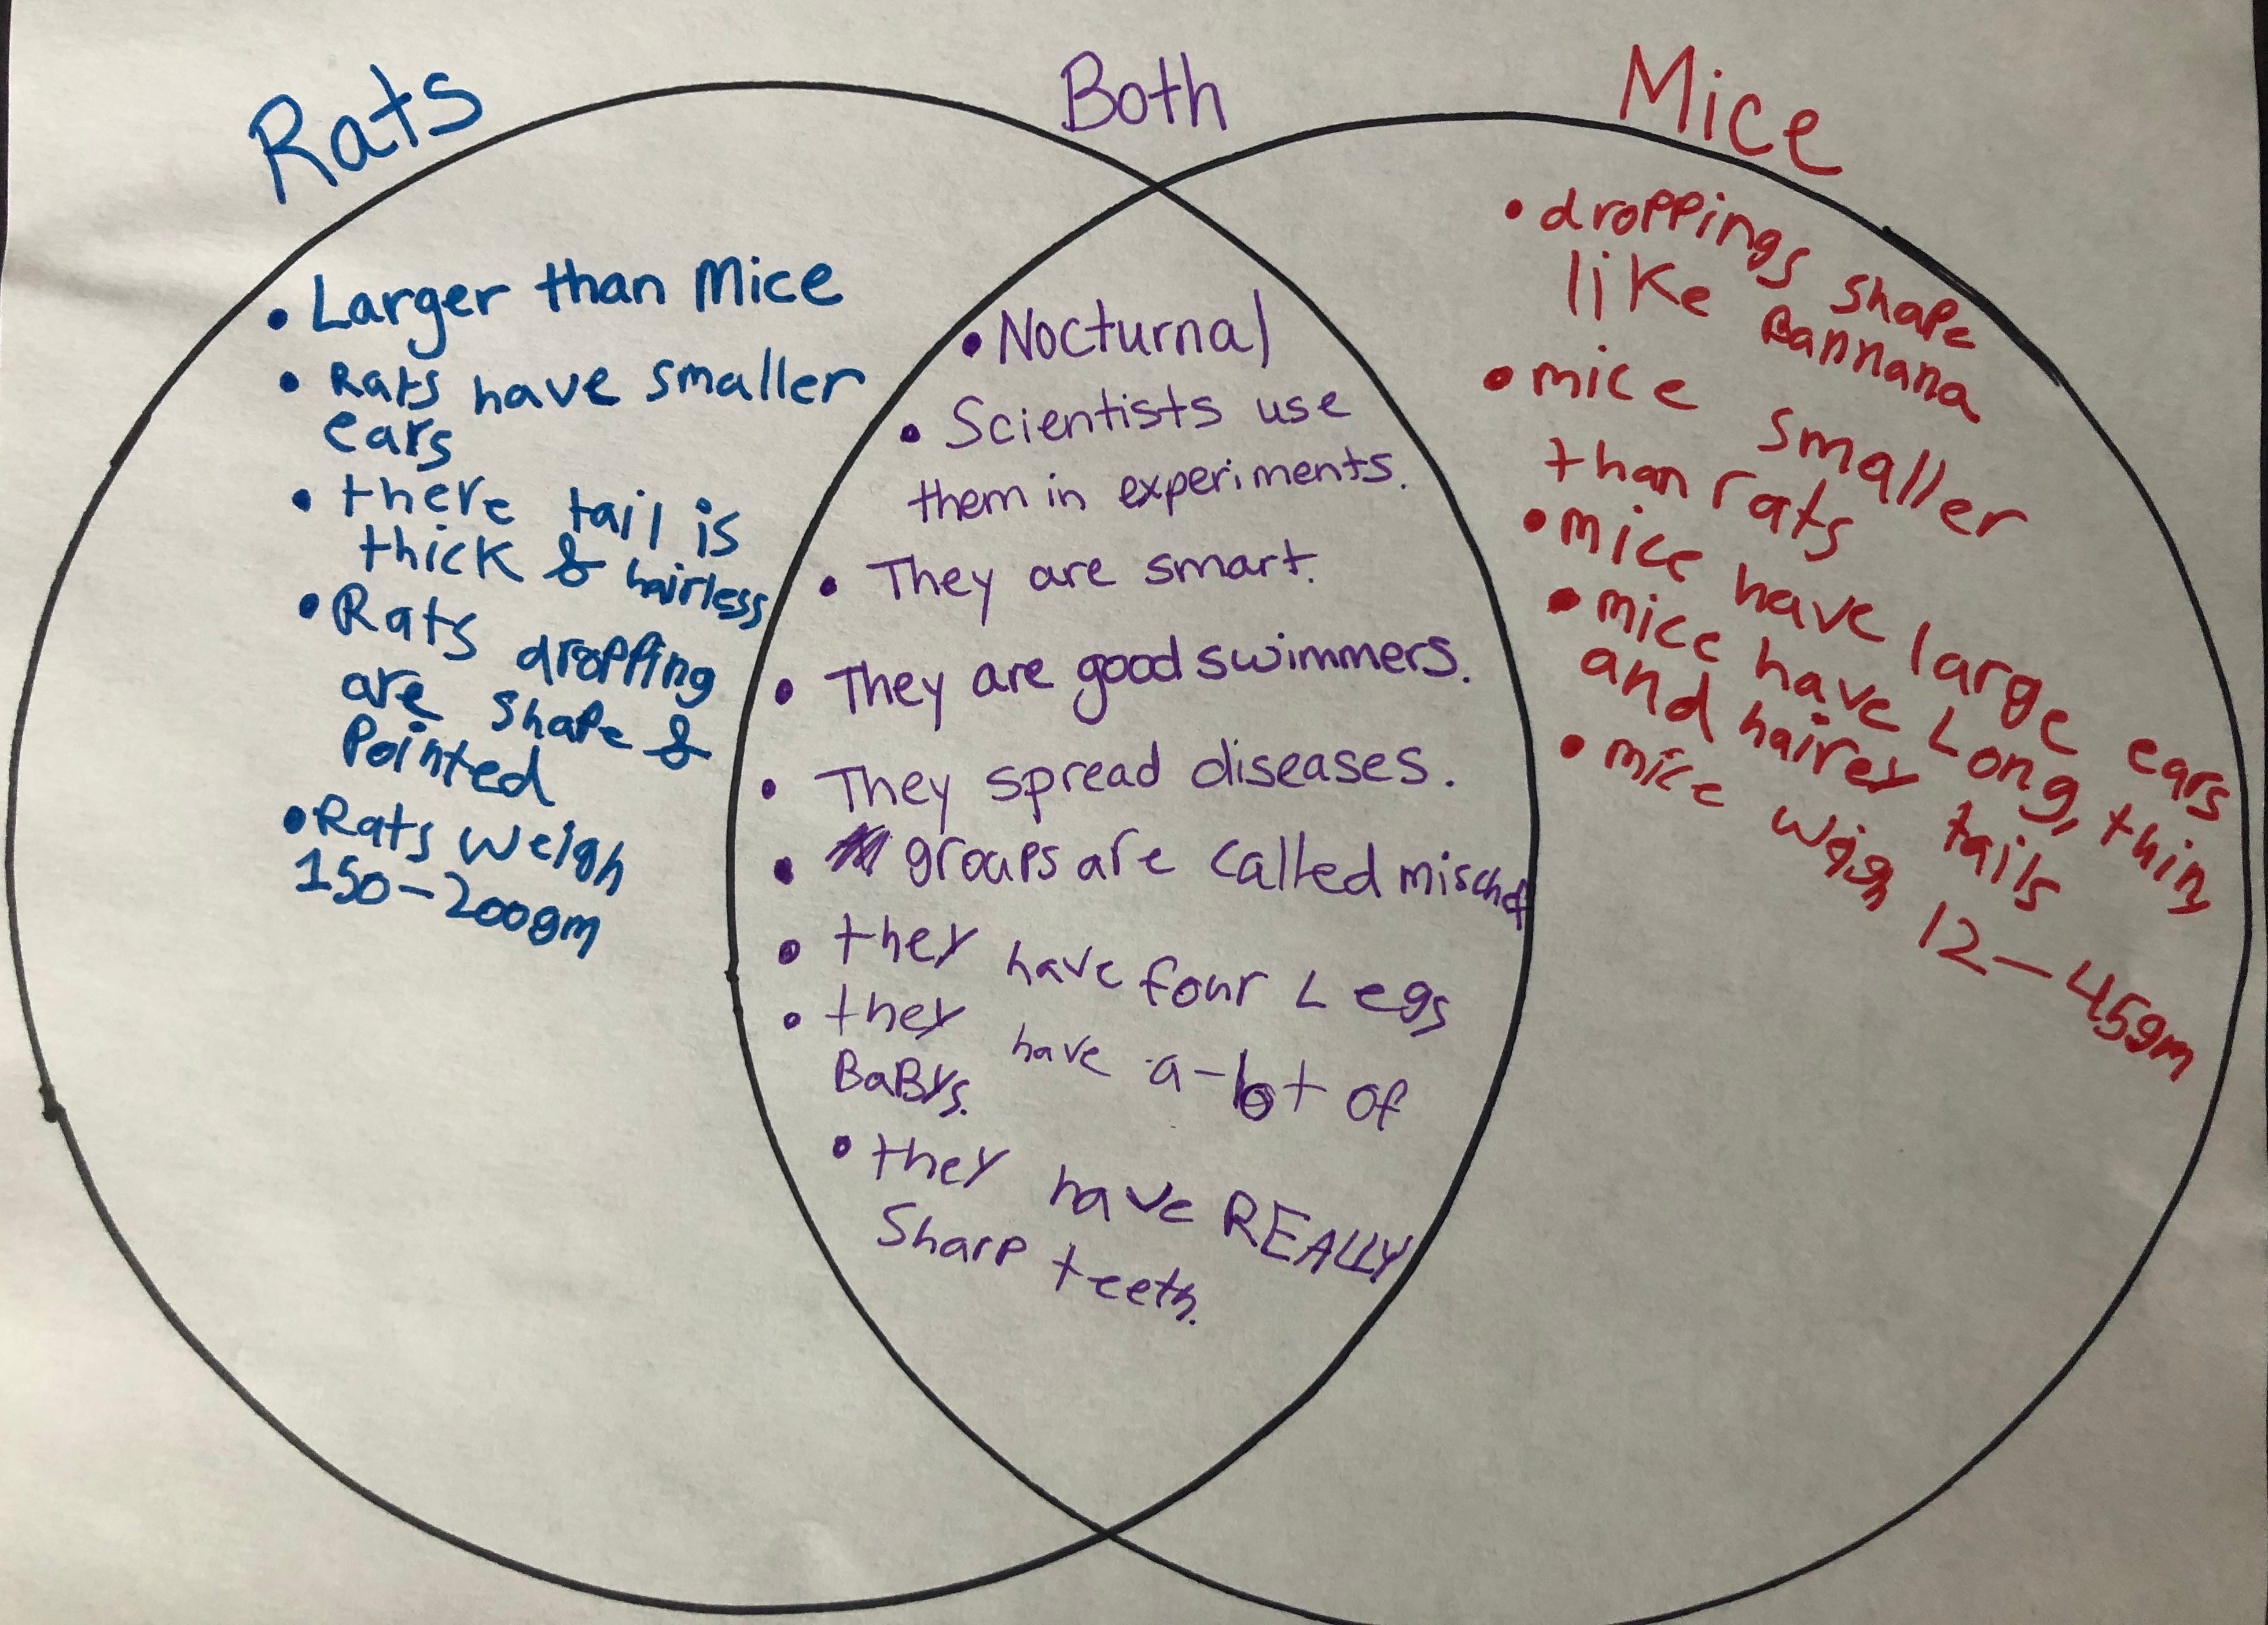 Rats
• Larger than Mice
• Rats have smaller
ears
• there tail is
thick & hairless
• Rats dropping
are shape &
Pointed
• Rats weigh
150-200gm
Both
• Nocturnal
• Scientists use
them in experiments.
• They are smart.
• They are good swimmers.
• They spread diseases.
• groups are called mischef
• they have four Legs
• they have a-lot of
BaBys.
• they have REALLY
Sharp teeth.
Mice
• droppings shape
like Bannana
• mice smaller
than rats
• mice have large ears
• mice have Long, thin,
and hairey tails
• mice wigh 12-45gm